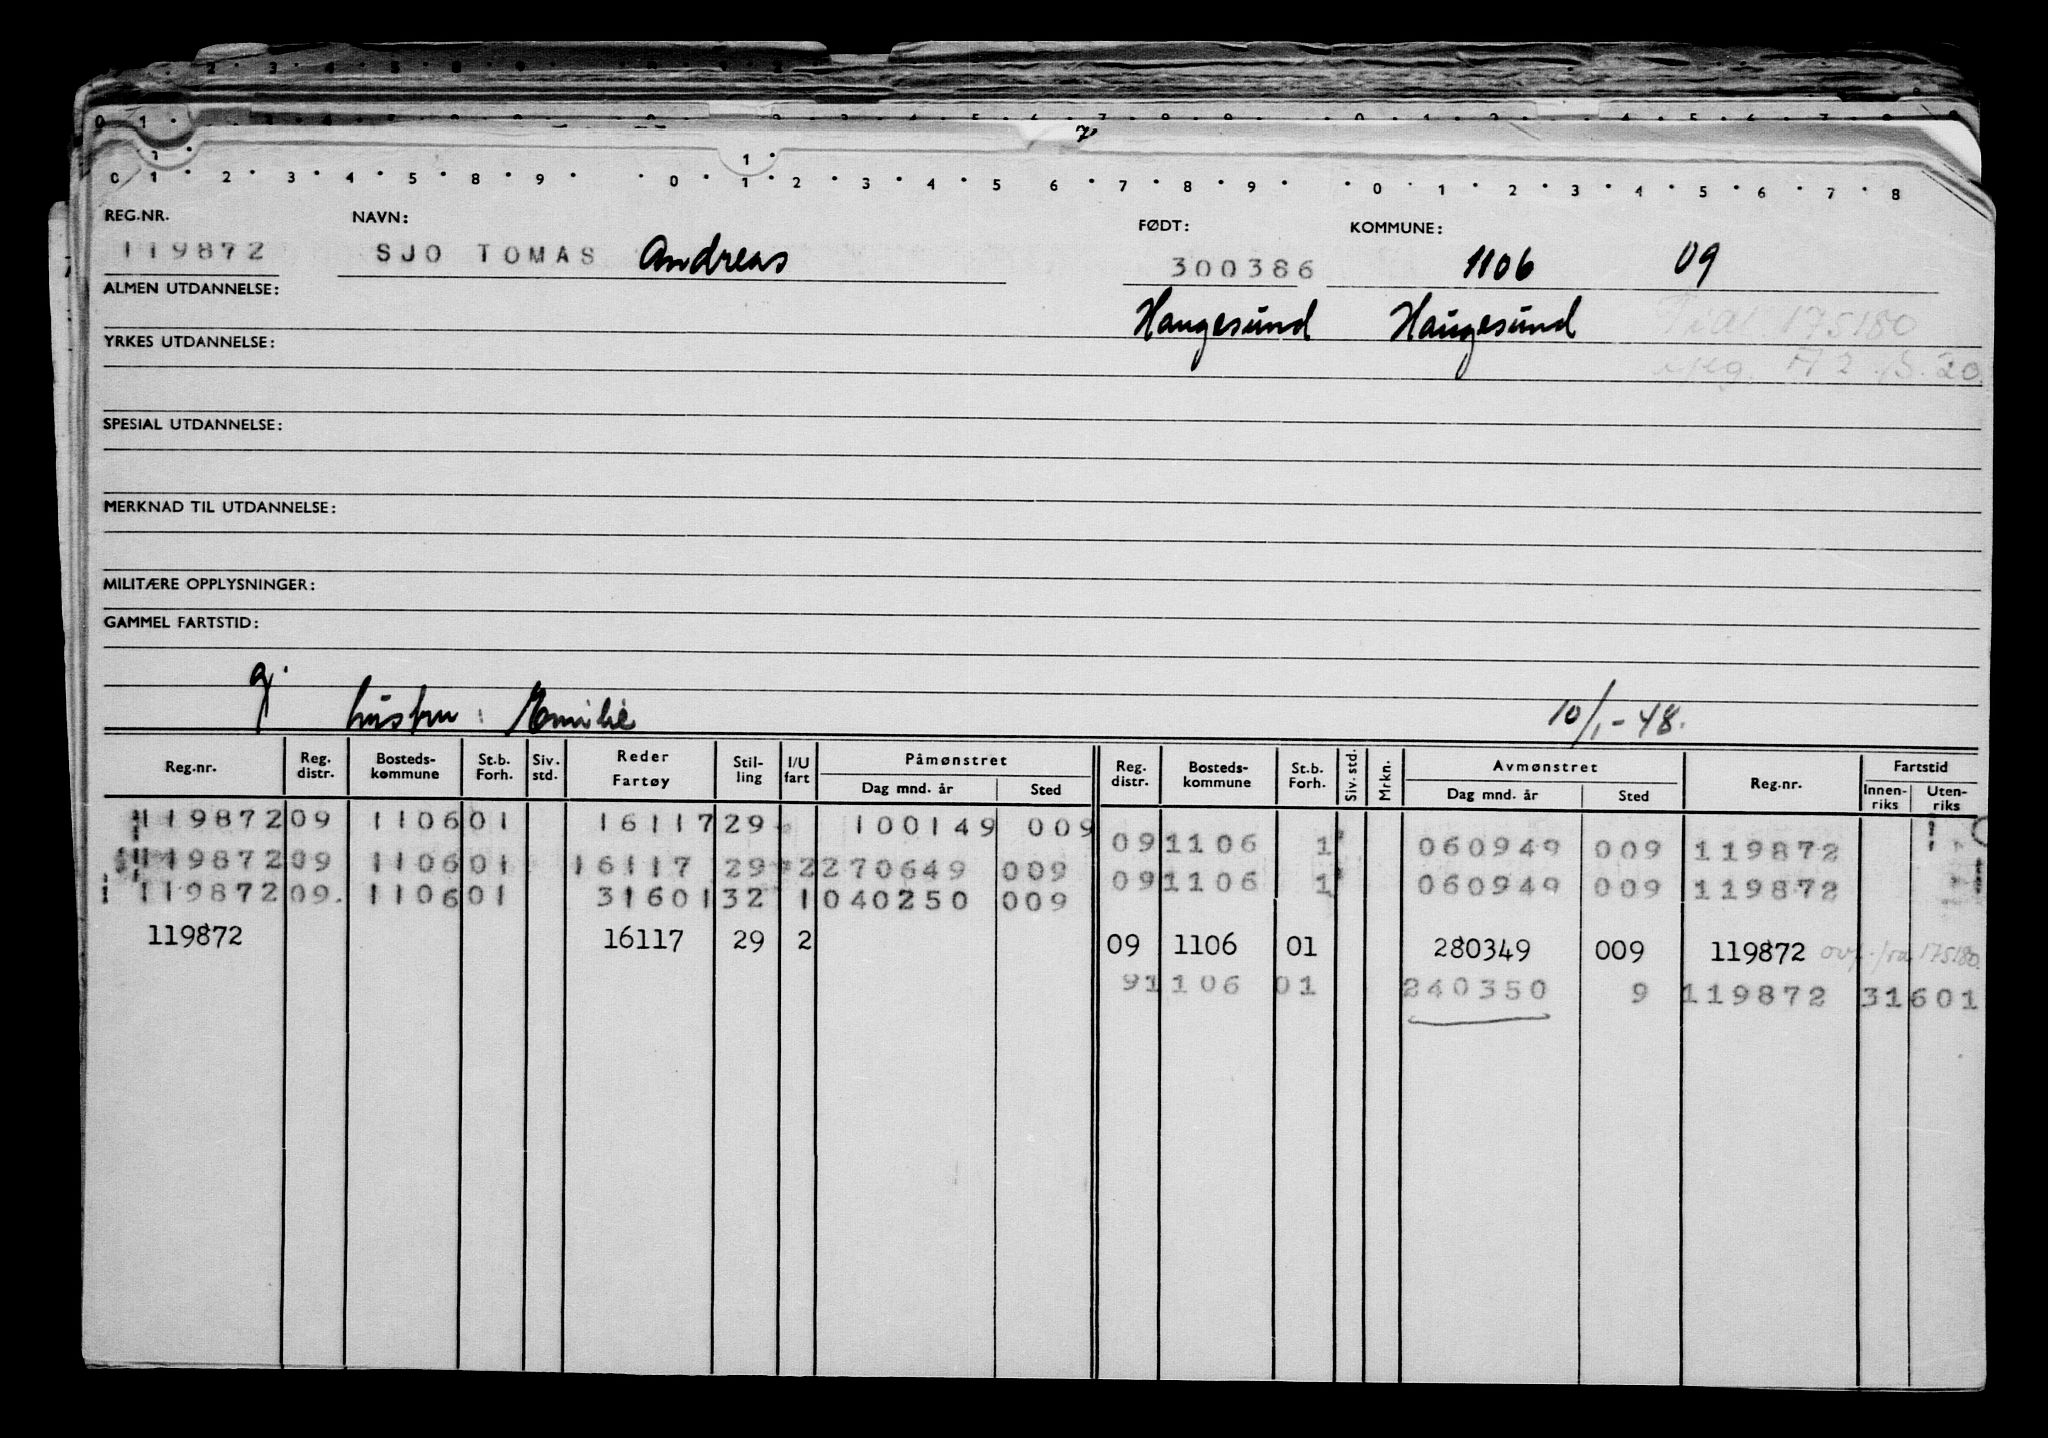 REG.NR. NAVN: FØDT: KOMMUNE:
119872 SJO TOMAS Andreas 300386 1106 09
ALMEN UTDANNELSE: Haugesund Haugesund 175180
YRKES UTDANNELSE:
SPESIAL UTDANNELSE:
MERKNAD TIL UTDANNELSE:
MILITÆRE OPPLYSNINGER:
GAMMEL FARTSTID:
gj.
hustru: Emilie 10/1-48.
Reg.nr. Reg. distr. Bosteds-kommune St.b. Forh. Siv. std. Reder Fartøy Stil-ling I/U fart Påmønstret Dag mnd. år Sted Reg. distr. Bosteds-kommune St.b. Forh. Siv. std. Mrkn. Avmønstret Dag mnd. år Sted Reg.nr. Fartstid Innen-riks Uten-riks
119872 09 1106 01 16117 29 100149 009 09 1106 1 060949 009 119872
119872 09 1106 01 16117 29 2 270649 009 09 1106 1 060949 009 119872
119872 09. 1106 01 31601 32 1 040250 009
119872 16117 29 2 09 1106 01 280349 009 119872 175180.
9 1106 01 240350 9 119872 31601